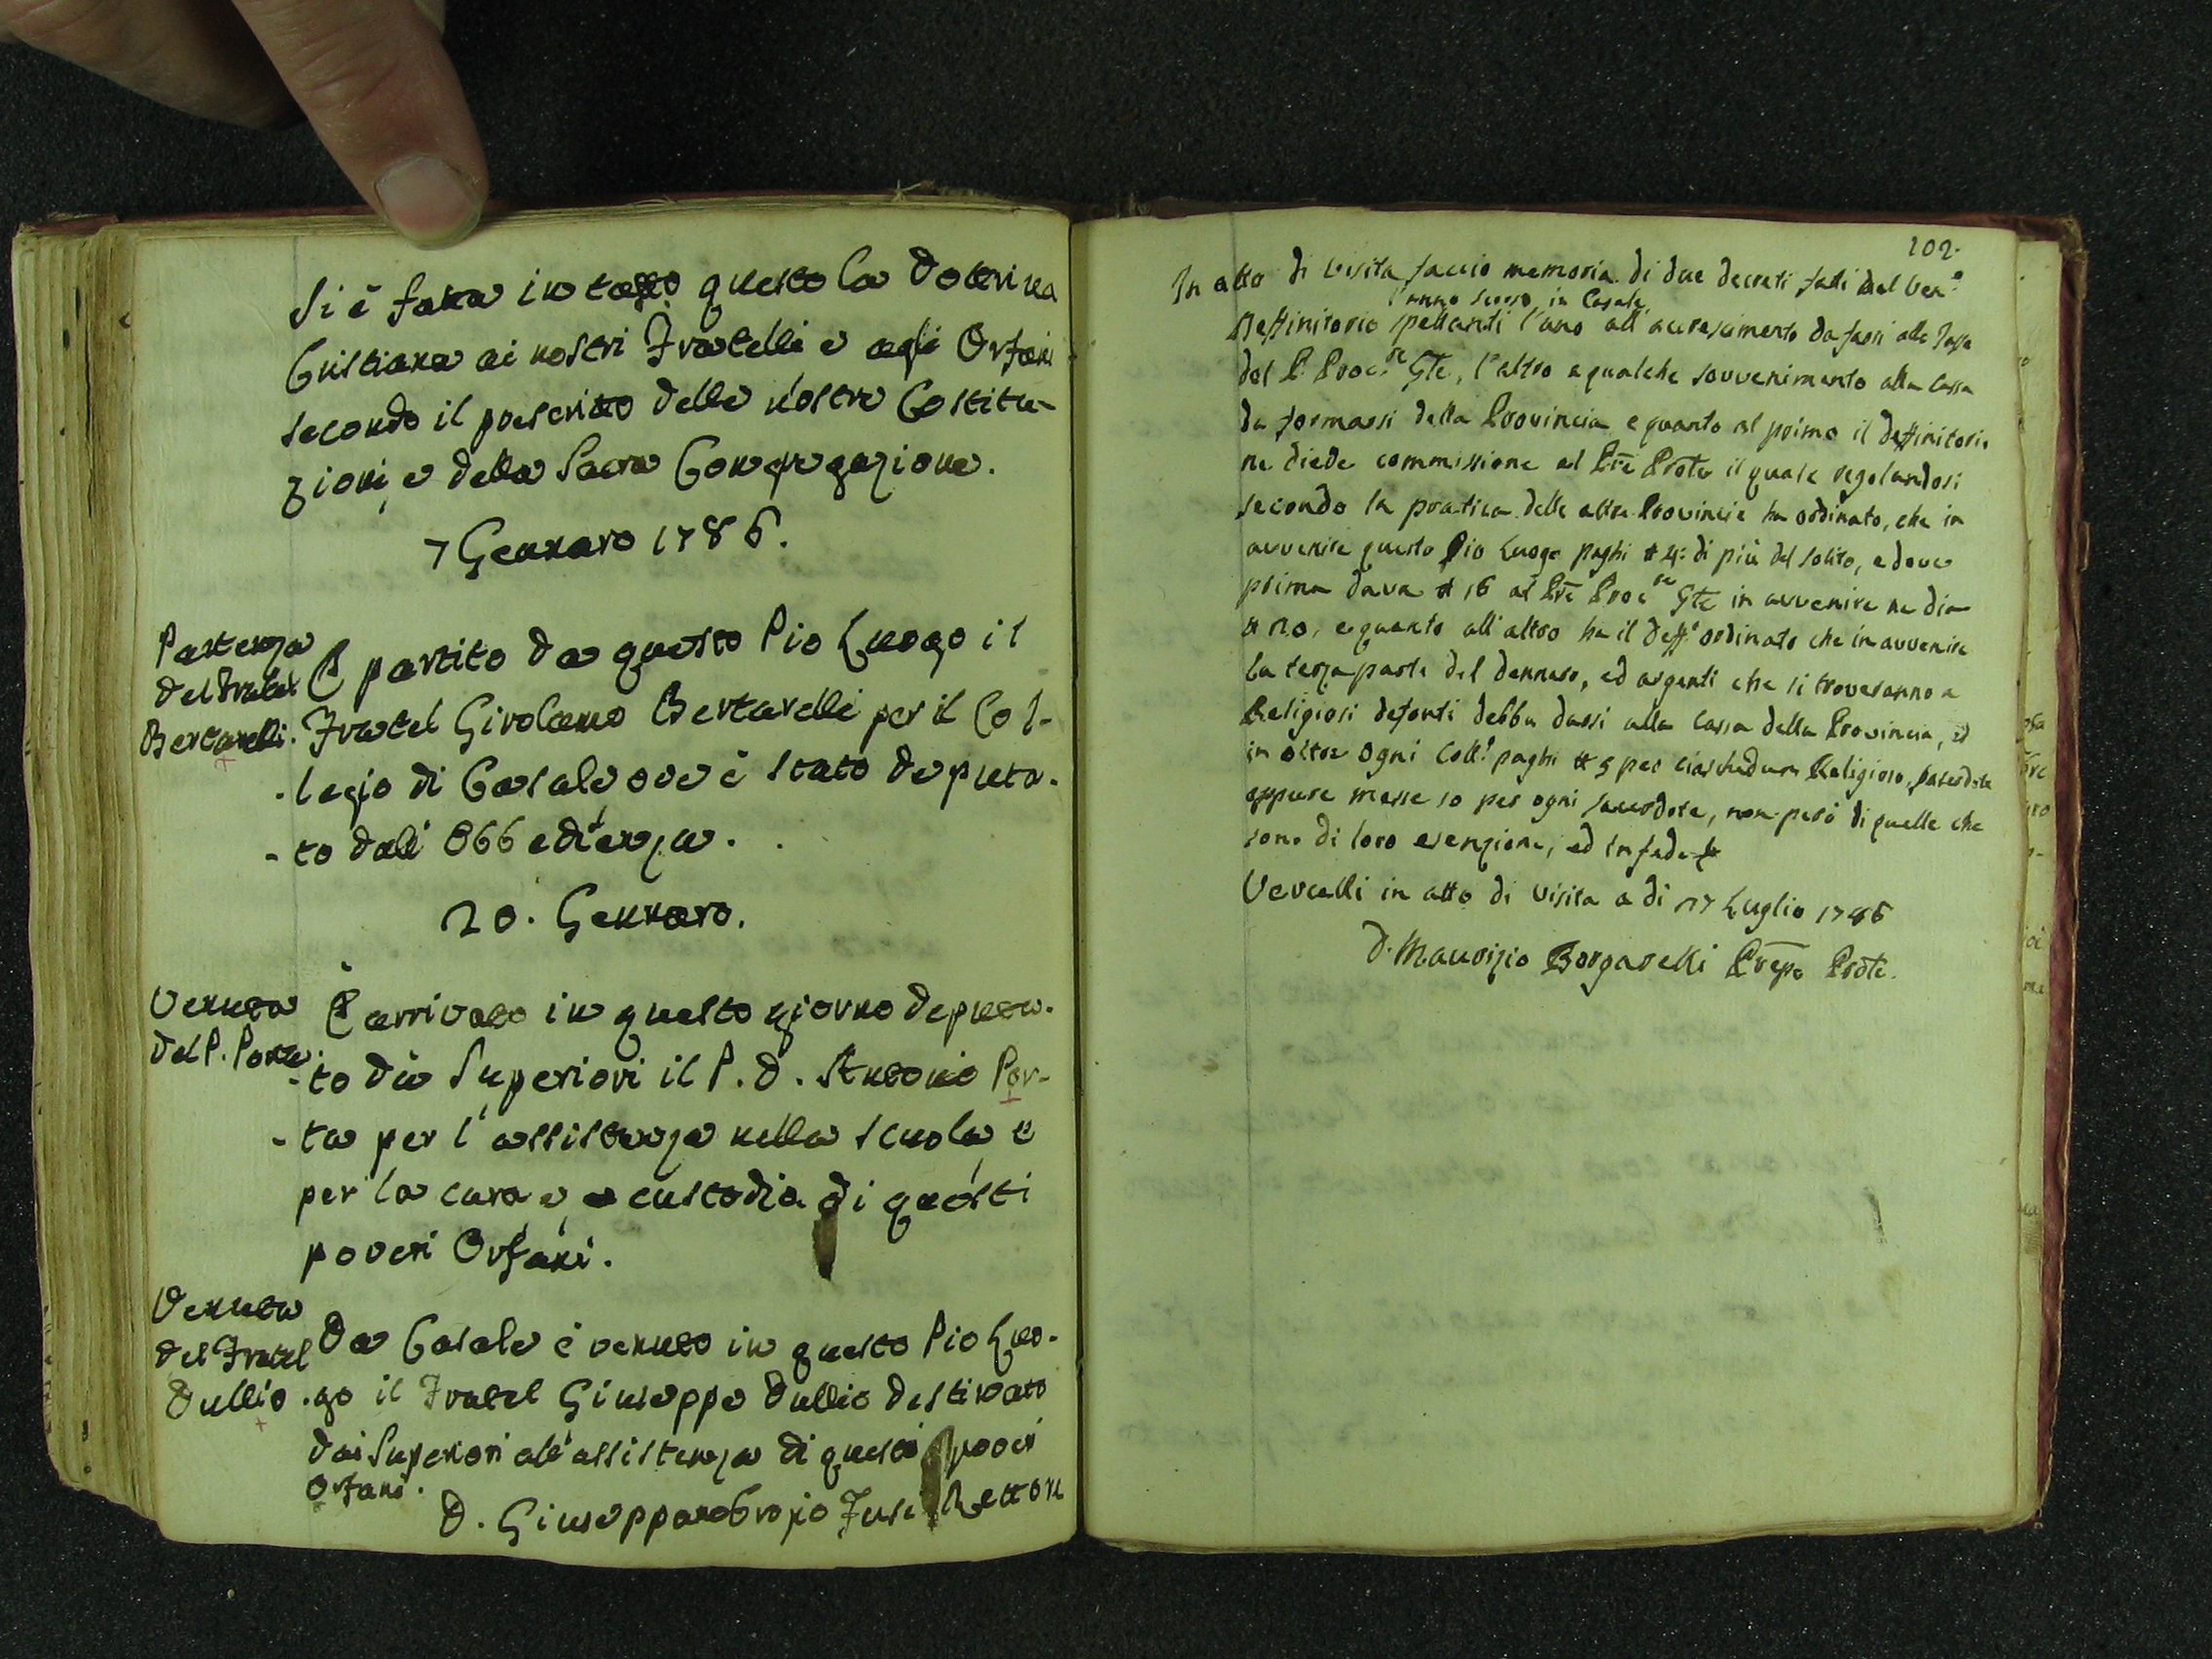 Si è fatta in tatto questo la Dottrina
Cristiana ai nostri Fratelli e agli Orfani
secondo il prescritto delle nostre Costitu-
zioni, e della Sacra Congregazione.
7 Gennaro 1786.
Partenza
del Fratel
Bertarelli.
È partito da questo Pio Luogo il
Fratel Girolamo Bertarelli per il Col-
-legio di Casale ove è stato deputa-
-to dall' Obbedienza.
20. Gennaro.
Venuta
del P. Porta.
È arrivato in questo giorno deputa-
-to da Superiori il P. D. Antonio Por-
-ta per l'assistenza nella scuola e
per la cura, e custodia di questi
poveri Orfani.
Venuta
del Fratel
Dullio
Da Casale è venuto in questo Pio Luo-
-go il Fratel Giuseppe Dullio destinato
dai Superiori all'assistenza di questi poveri
Orfani.
D. Giuseppambrogio Fusi Rettore
102.
In atto di visita faccio memoria di due decreti fatti dal Ven.e
l'anno scorso in Casale
Deffinitorio spettanti l'uno all'accrescimento da farsi alla Tassa
del P. Proc.re Gle, l'altro a qualche sovvenimento alla Cassa
da formarsi della Provincia e quanto al primo il deffinitorio
ne diede commissione al Pre Prole il quale regolandosi
secondo la pratica delle altre Provincie ha ordinato, che in
avvenire questo Pio Luogo paghi # 4: di più del solito, e dove
prima dava # 16 al Pre Proc.re Gle in avvenire ne dia
# 20, e quanto all'altro ha il deff.o ordinato che in avvenire
la terza parte del dennaro, ed argenti che si troveranno a
Religiosi defonti debba darsi alla Cassa della Provincia, ed
in oltre ogni Coll.o paghi # 5 per ciaschedun Religioso, sacerdote
oppure messe 10 per ogni sacerdote, non però di quelle che
sono di loro esenzione, ed in fede
Vercelli in atto di visita a di 17 Luglio 1786
D. Maurizio Borgarelli Prepo Prole.